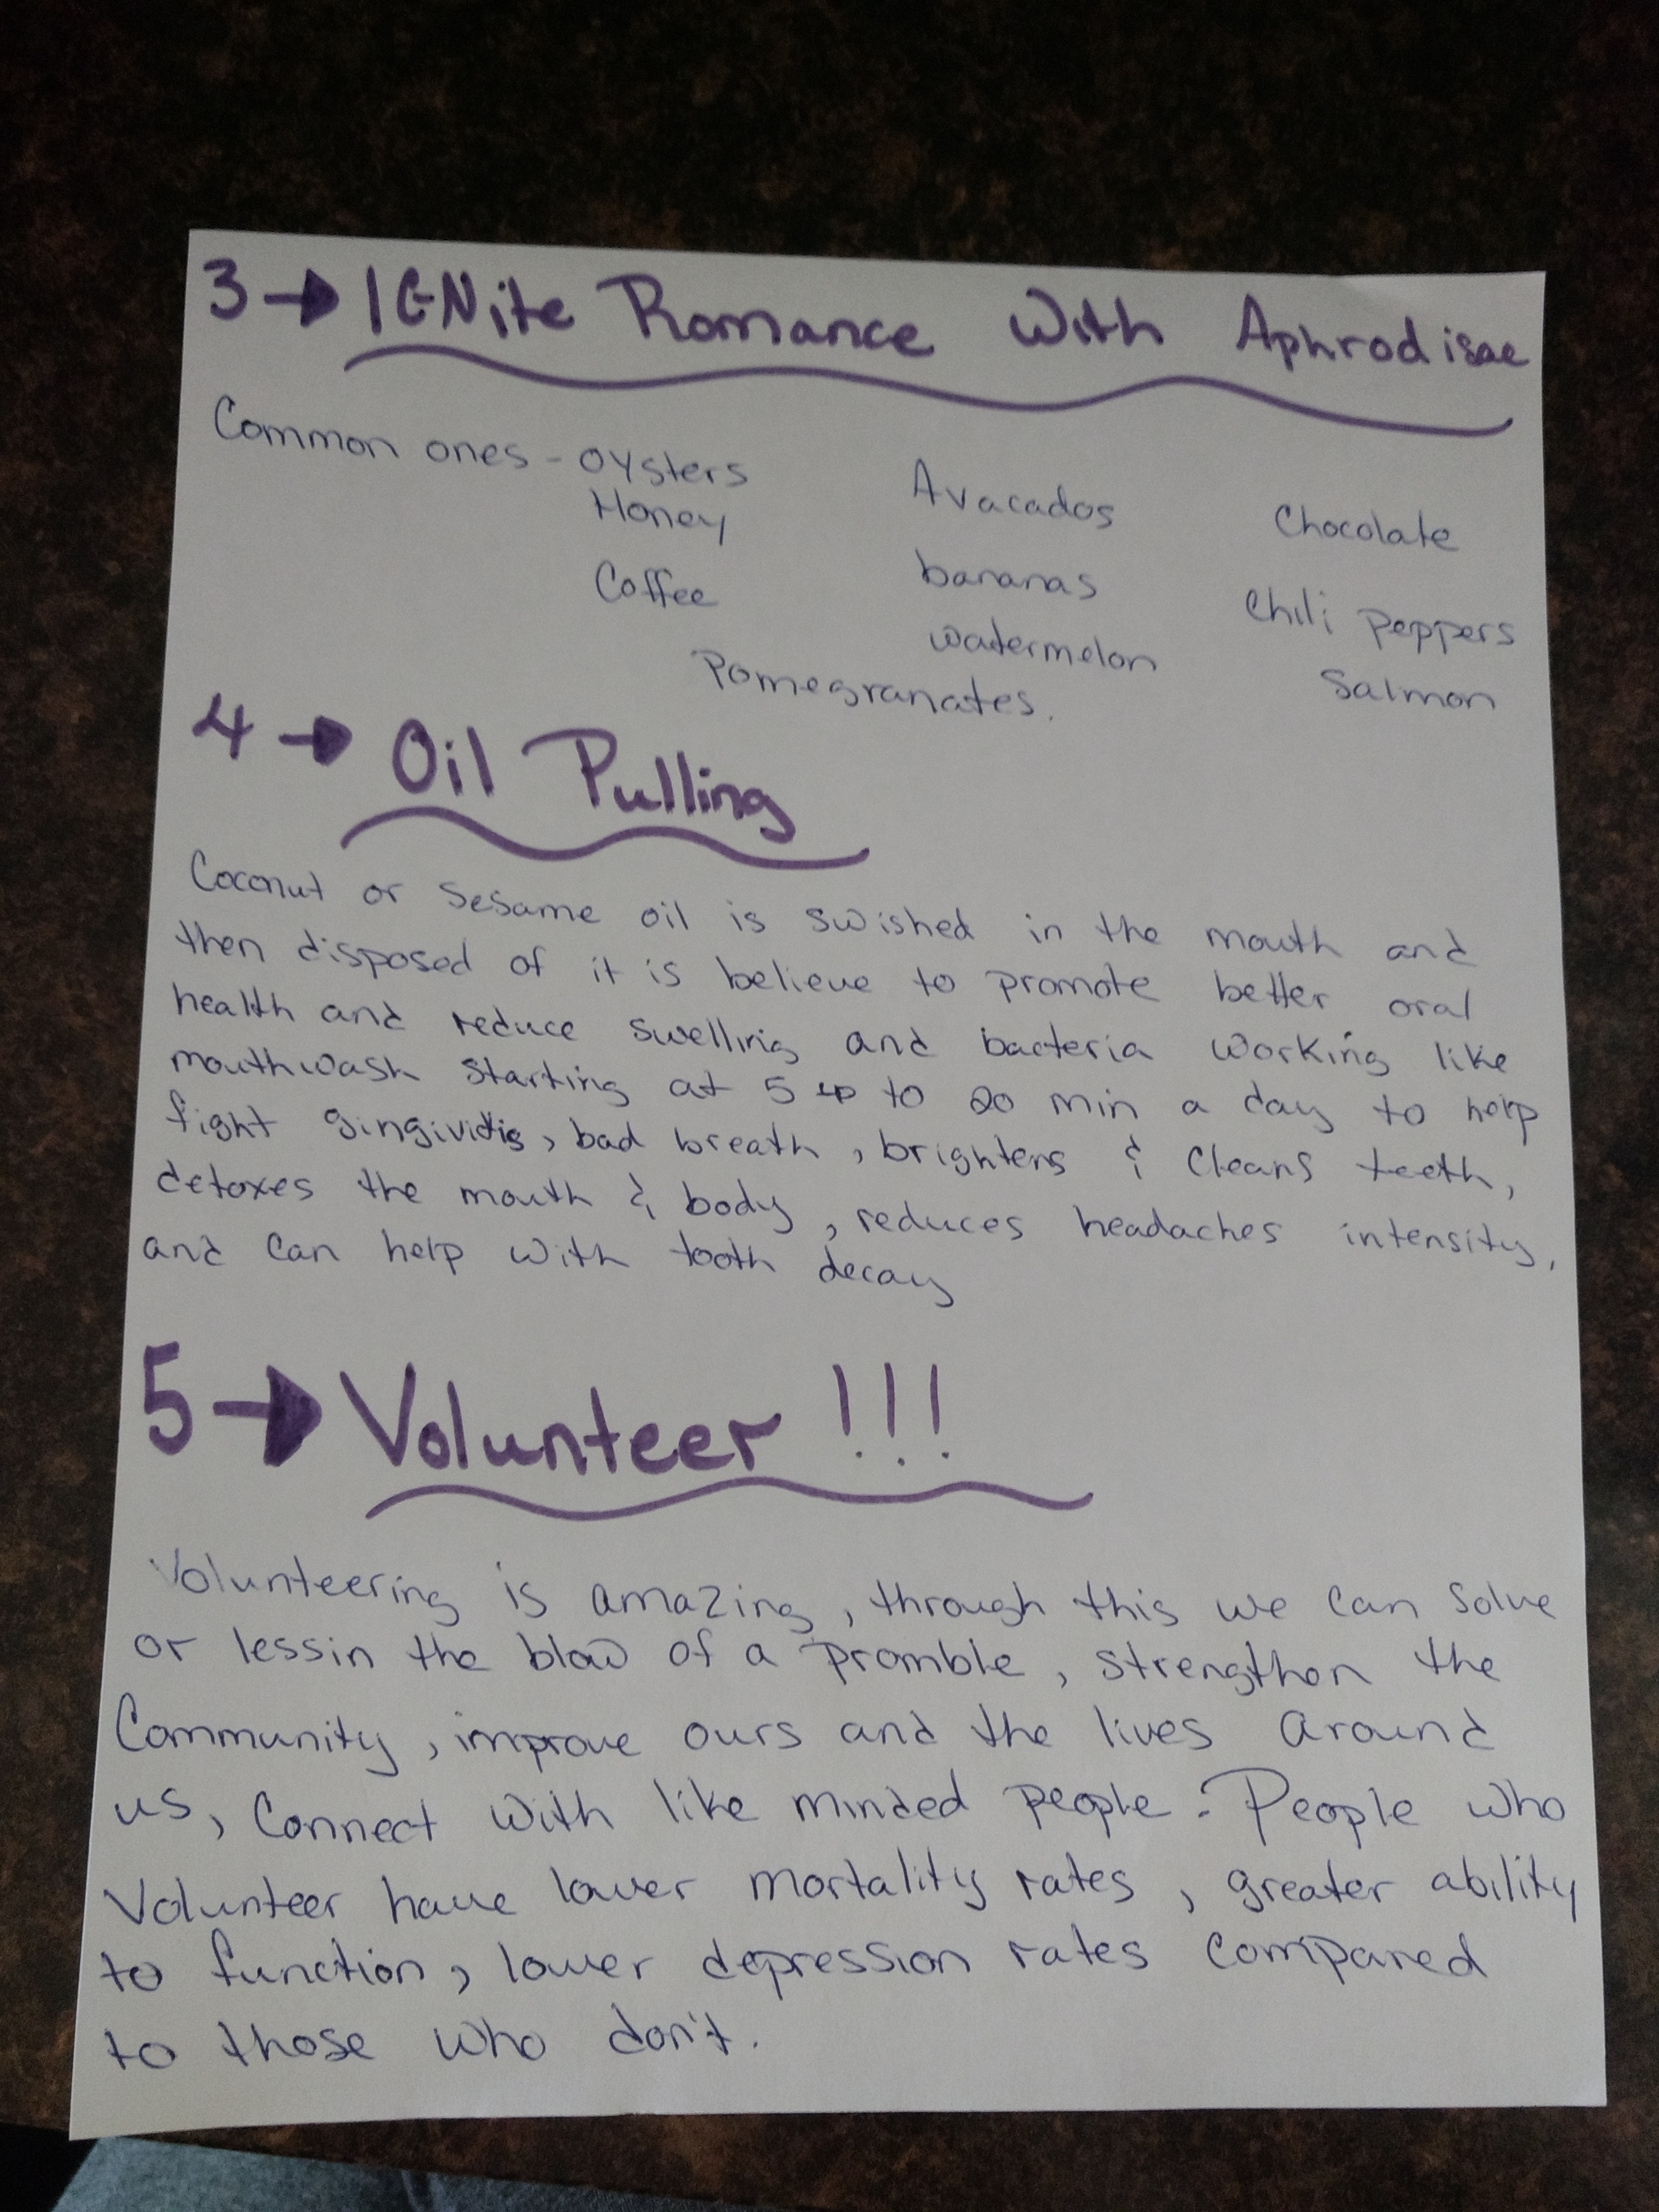 3 → IGNite Romance With Aphrodisae
Common ones - oysters Avacados Chocolate
Honey
Coffee bananas Chili Peppers
watermelon
Pomegranates. Salmon
4 → Oil Pulling
Coconut or Sesame oil is swished in the mouth and
then disposed of it is believe to promote better oral
health and reduce swelling and bacteria working like
mouthwash starting at 5 up to 20 min a day to help
fight gingividtis, bad breath, brightens & cleans teeth,
detoxes the mouth & body, reduces headaches intensity,
and can help with tooth decay
5 → Volunteer !!!
Volunteering is amazing, through this we can solve
or lessin the blow of a promble, strengthen the
Community, improve ours and the lives around
us, connect with like minded people. People who
Volunteer have lower mortality rates, greater ability
to function, lower depression rates compared
to those who don't.